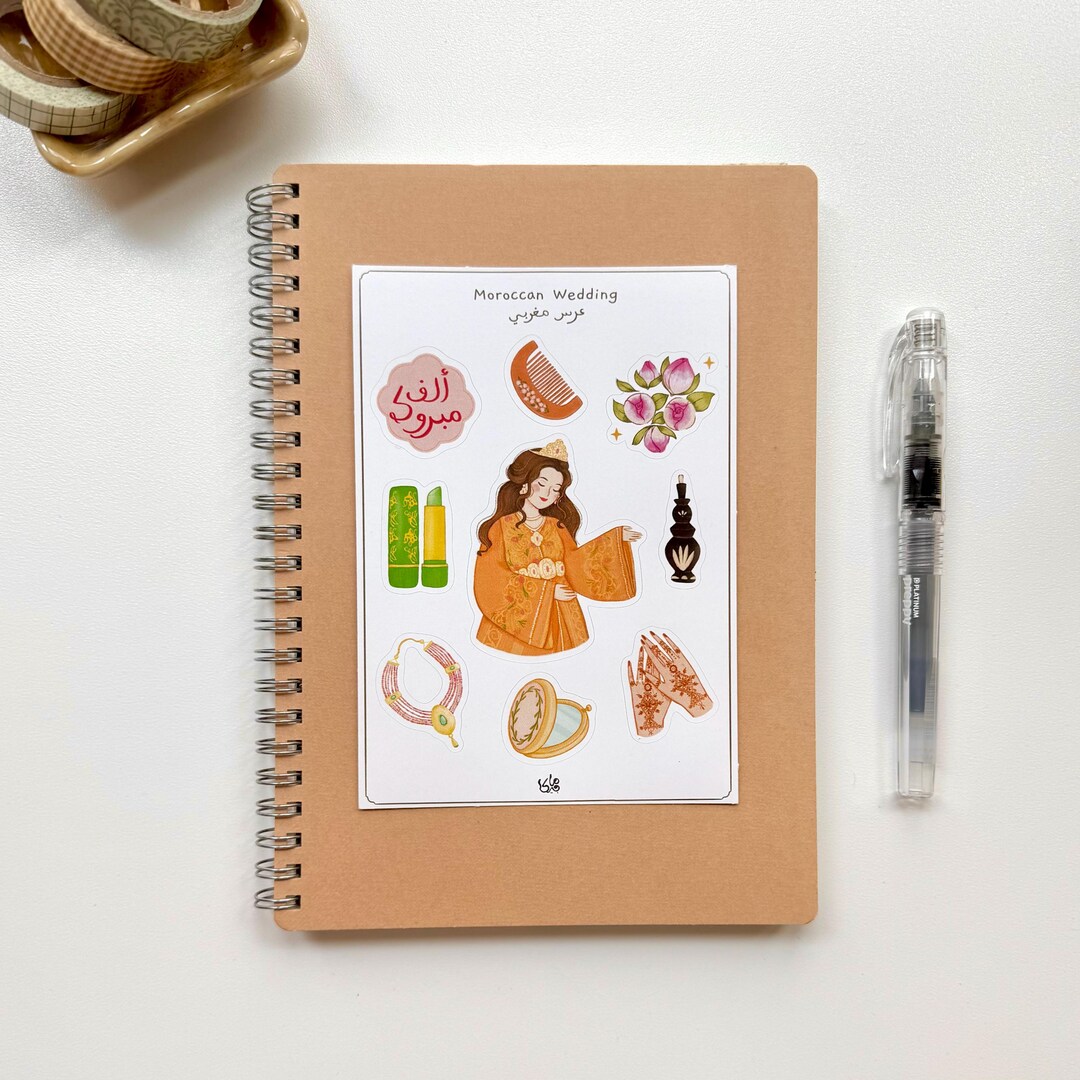 Moroccan Wedding
عرس مغربي
ألف
مبروك
PLATINUM
preppy